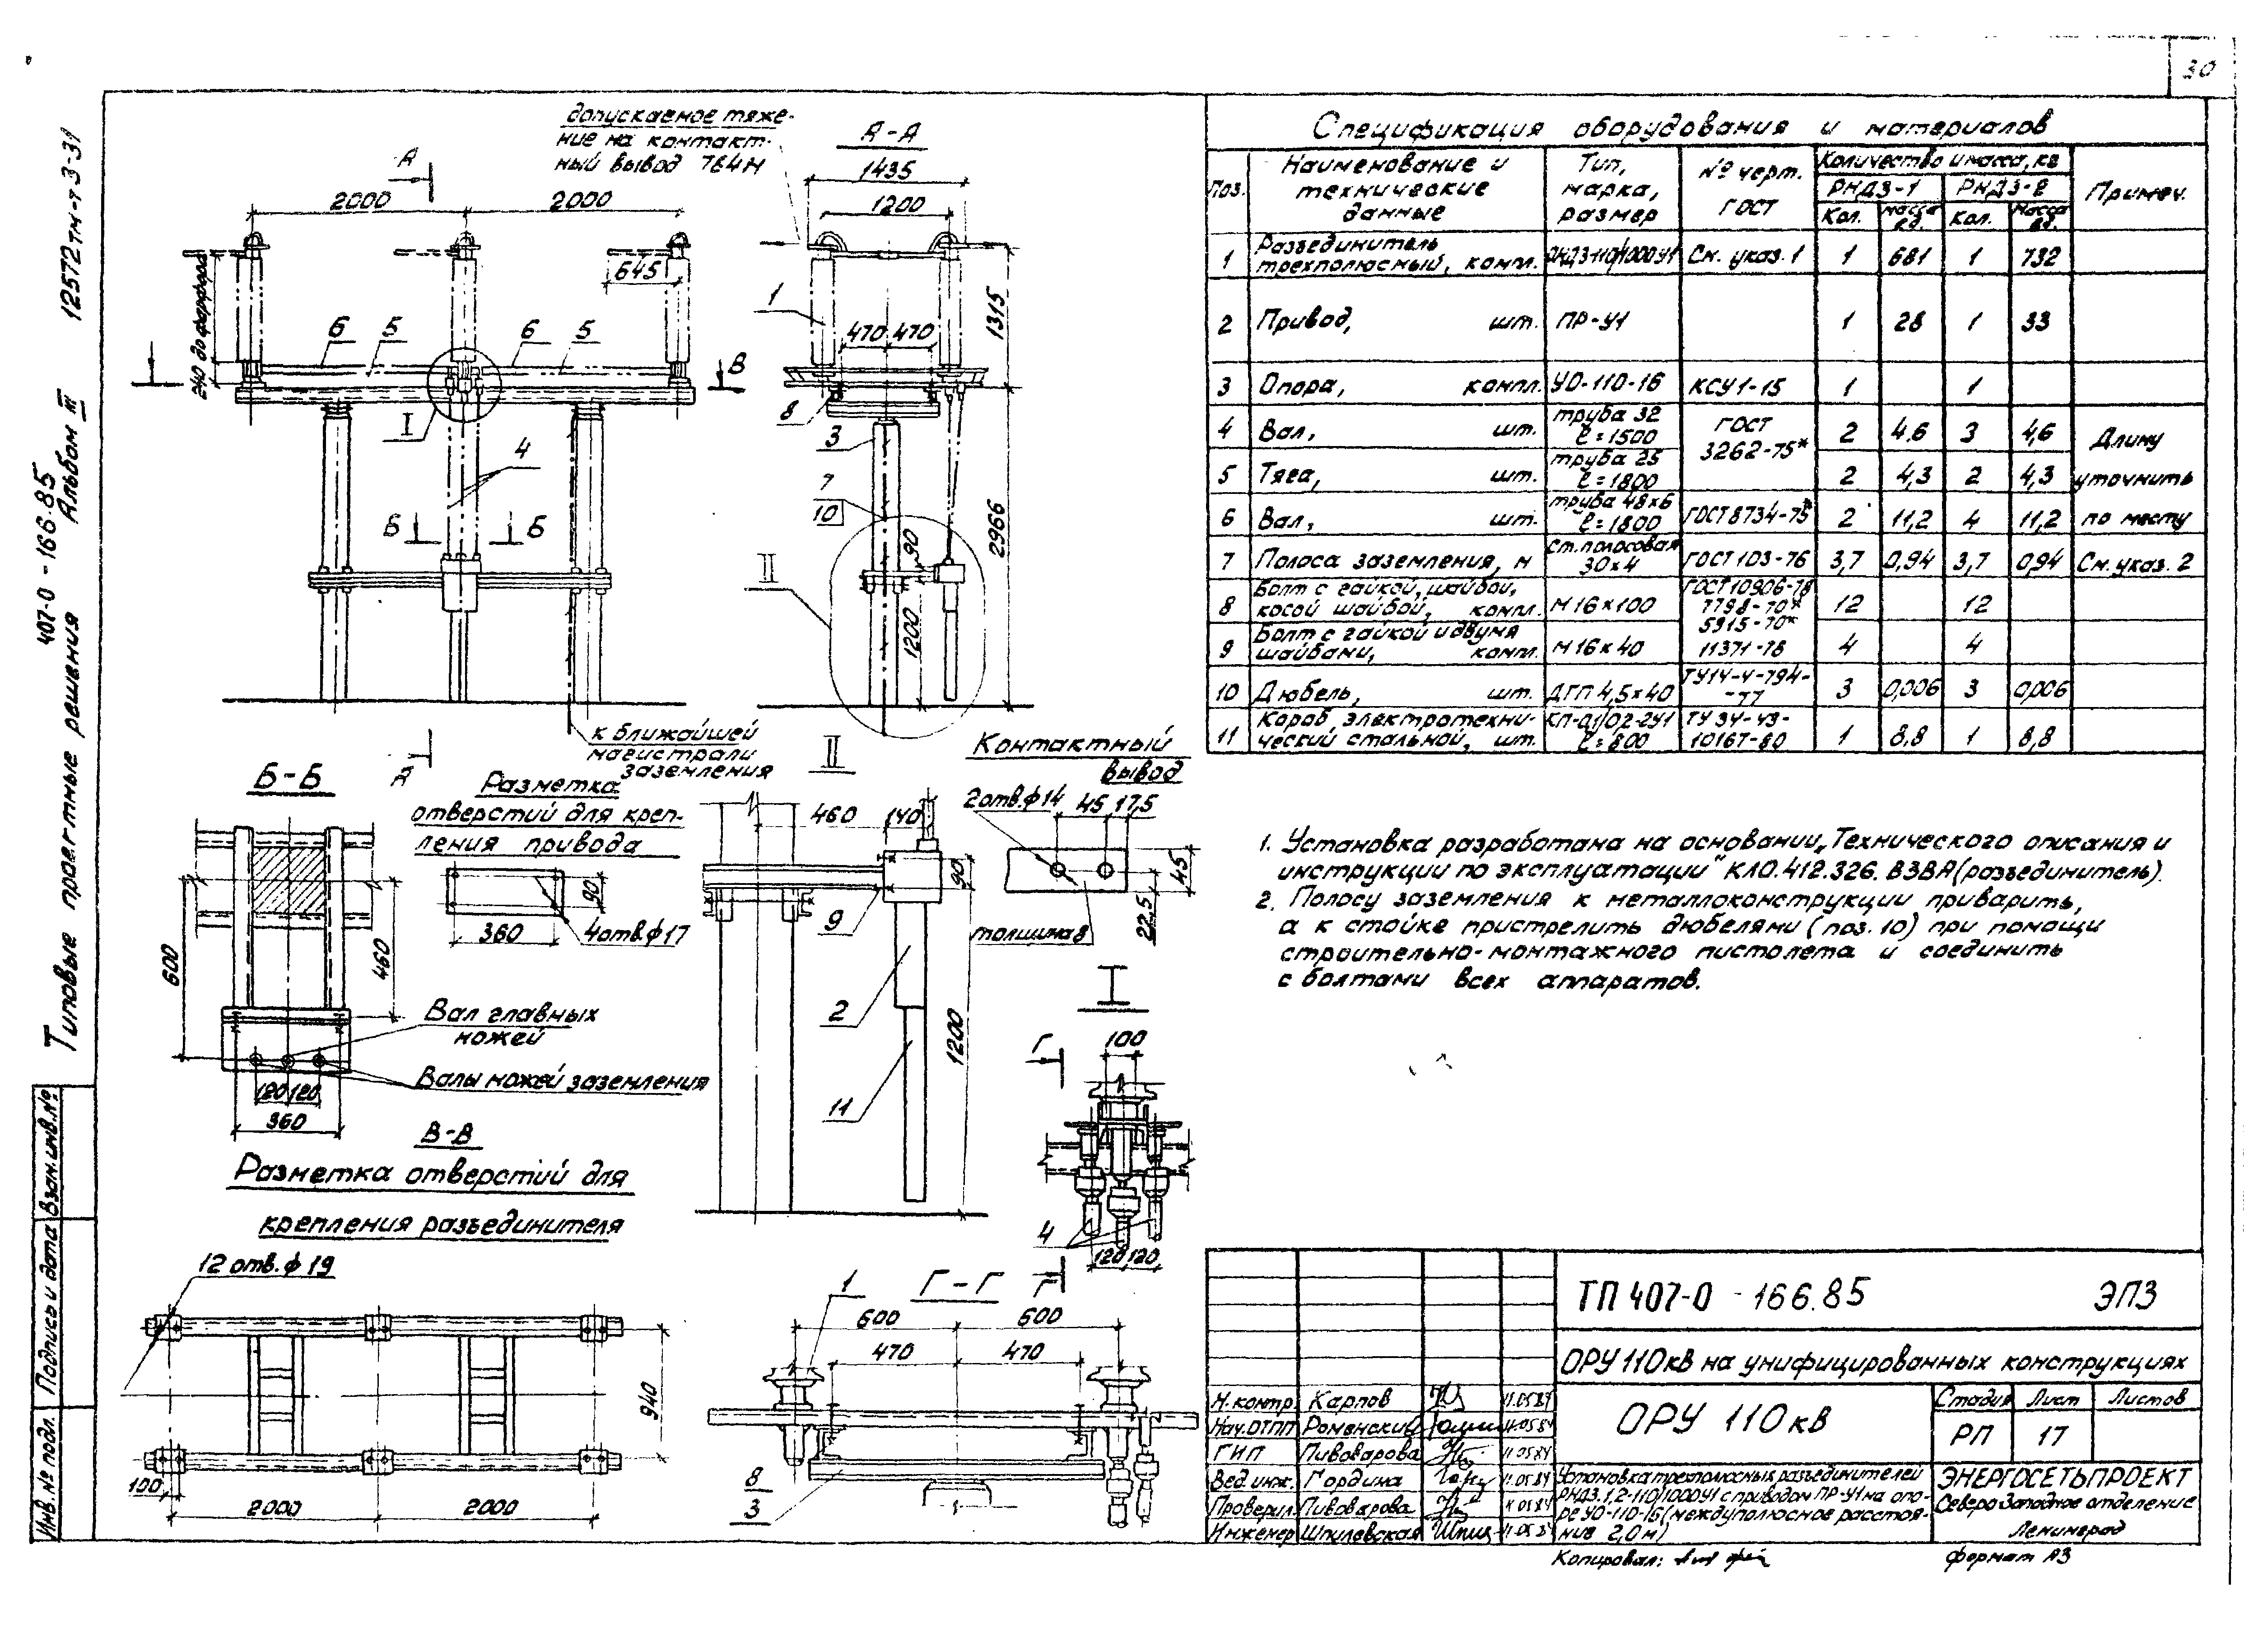 30
12572тм-т3-31
407-0-166.85
Альбом III
Типовые проектные решения
Взам.инв.№
Подпись и дата
Инв.№ подл.
допускаемое тяже-
ние на контакт-
ный вывод 784Н
А
2000
2000
645
240 до фарфора
6
5
6
5
В
I
4
Б
Б
к ближайшей
магистрали
заземления
А
А-А
1435
1200
1
470
470
1315
8
3
7
10
II
90
2966
1200
Б-Б
600
460
Вал главных
ножей
Валы ножей заземления
120
120
360
Разметка
отверстий для креп-
ления привода
90
360
4отв.ф17
II
460
140
90
9
2
11
1200
Контактный
вывод
2отв.ф14
45
17,5
45
22,5
толщина 8
I
Г
100
4
120
120
Г
В-В
Разметка отверстий для
крепления разъединителя
12 отв.ф19
940
100
2000
2000
Г-Г
1
600
600
470
470
8
3
Спецификация оборудования и материалов
Поз.
Наименование и
технические
данные
Тип,
марка,
размер
№ черт.
ГОСТ
Количество и масса, кг
РНДЗ-1
РНДЗ-2
Кол.
Масса
ед.
Кол.
Масса
ед.
Примеч.
1 Разъединитель
трехполюсный, компл. РНДЗ-110/1000У1 См. указ.1 1 681 1 732
2 Привод, шт. ПР-У1 1 28 1 33
3 Опора, компл. УО-110-16 КСУ1-15 1 1
4 Вал, шт. труба 32 ℓ=1500 ГОСТ 3262-75* 2 4,6 3 4,6 Длину
5 Тяга, шт. труба 25 ℓ=1800 2 4,3 2 4,3 уточнить
6 Вал, шт. труба 48х6 ℓ=1800 ГОСТ8734-75* 2 11,2 4 11,2 по месту
7 Полоса заземления, м ст.полосовая 30х4 ГОСТ103-76 3,7 0,94 3,7 0,94 См.указ.2
8 Болт с гайкой, шайбой,
косой шайбой, компл. М16х100 ГОСТ10906-78 7798-70* 12 12
5915-70*
9 Болт с гайкой и двумя
шайбами, компл. М16х40 11371-78 4 4
10 Дюбель, шт. ДГП 4,5х40 ТУ14-4-794-
-77 3 0,006 3 0,006
11 Короб электротехни-
ческий стальной, шт. КП-0,1/0,2-2У1 ℓ=800 ТУ 34-43-
10167-80 1 8,8 1 8,8
1. Установка разработана на основании „Технического описания и
инструкции по эксплуатации" КЛ0.412.326. ВЗВА(разъединитель).
2. Полосу заземления к металлоконструкции приварить,
а к стойке пристрелить дюбелями (поз.10) при помощи
строительно-монтажного пистолета и соединить
с болтами всех аппаратов.
ТП 407-0 -166.85 ЭП3
ОРУ 110кВ на унифицированных конструкциях
ОРУ 110кВ
Стадия Лист Листов
РП 17
Н.контр. Карпов 11.05.84
Нач.ОТПП Роменский 11.05.84
ГИП Пивоварова 11.05.84
Вед.инж. Гордина 11.05.84
Проверил Пивоварова 11.05.84
Инженер Шпулевская 11.05.84
Установка трехполюсных разъединителей
РНДЗ.1,2-110/1000У1 с приводом ПР-У1 на опо-
ре УО-110-16 (междуполюсное расстоя-
ние 2,0м)
ЭНЕРГОСЕТЬПРОЕКТ
Северо Западное отделение
Ленинград
Копировал:
формат А3